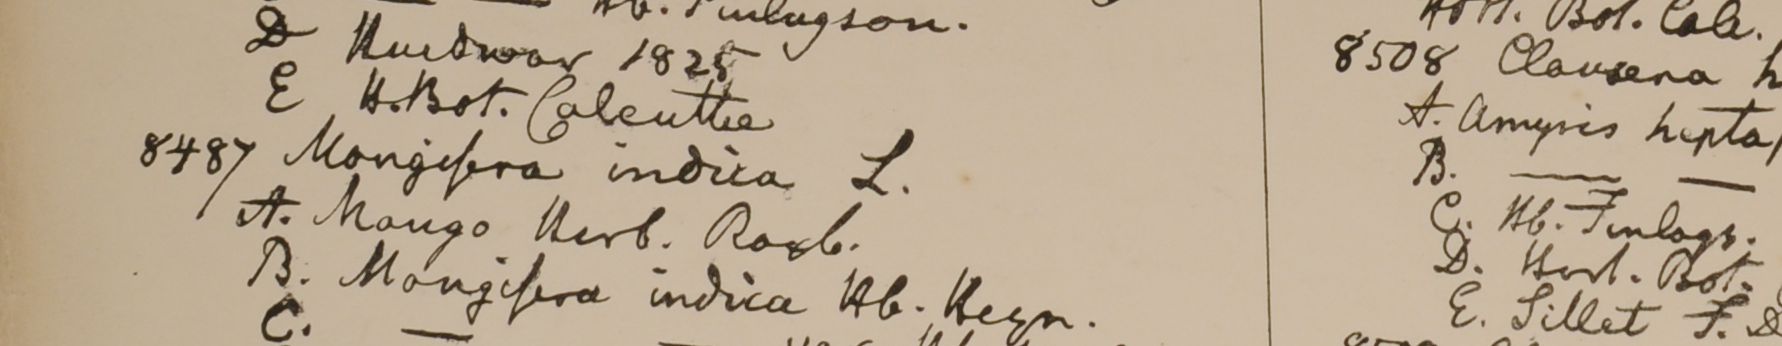 Hb. Finlayson.
D Hurdwar 1825
E H. Bot. Calcutta
8487 Mangifera indica L.
A. Mango Herb. Roxb.
B. Mangifera indica Hb. Heyn.
C. —
Hort. Bot. Calc.
8508 Clausena h
A. Amyris hepta
B. — —
C. Hb. Finlays.
D. Hort. Bot.
E. Sillet F. D